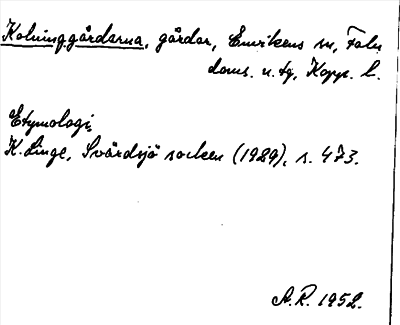 Kolninggårdarna, gårdar, Envikens sn, Falu
doms. n. tg, Kopp. l.
Etymologi:
K. Linge, Svärdsjö socken (1929), s. 473.
A.R. 1952.